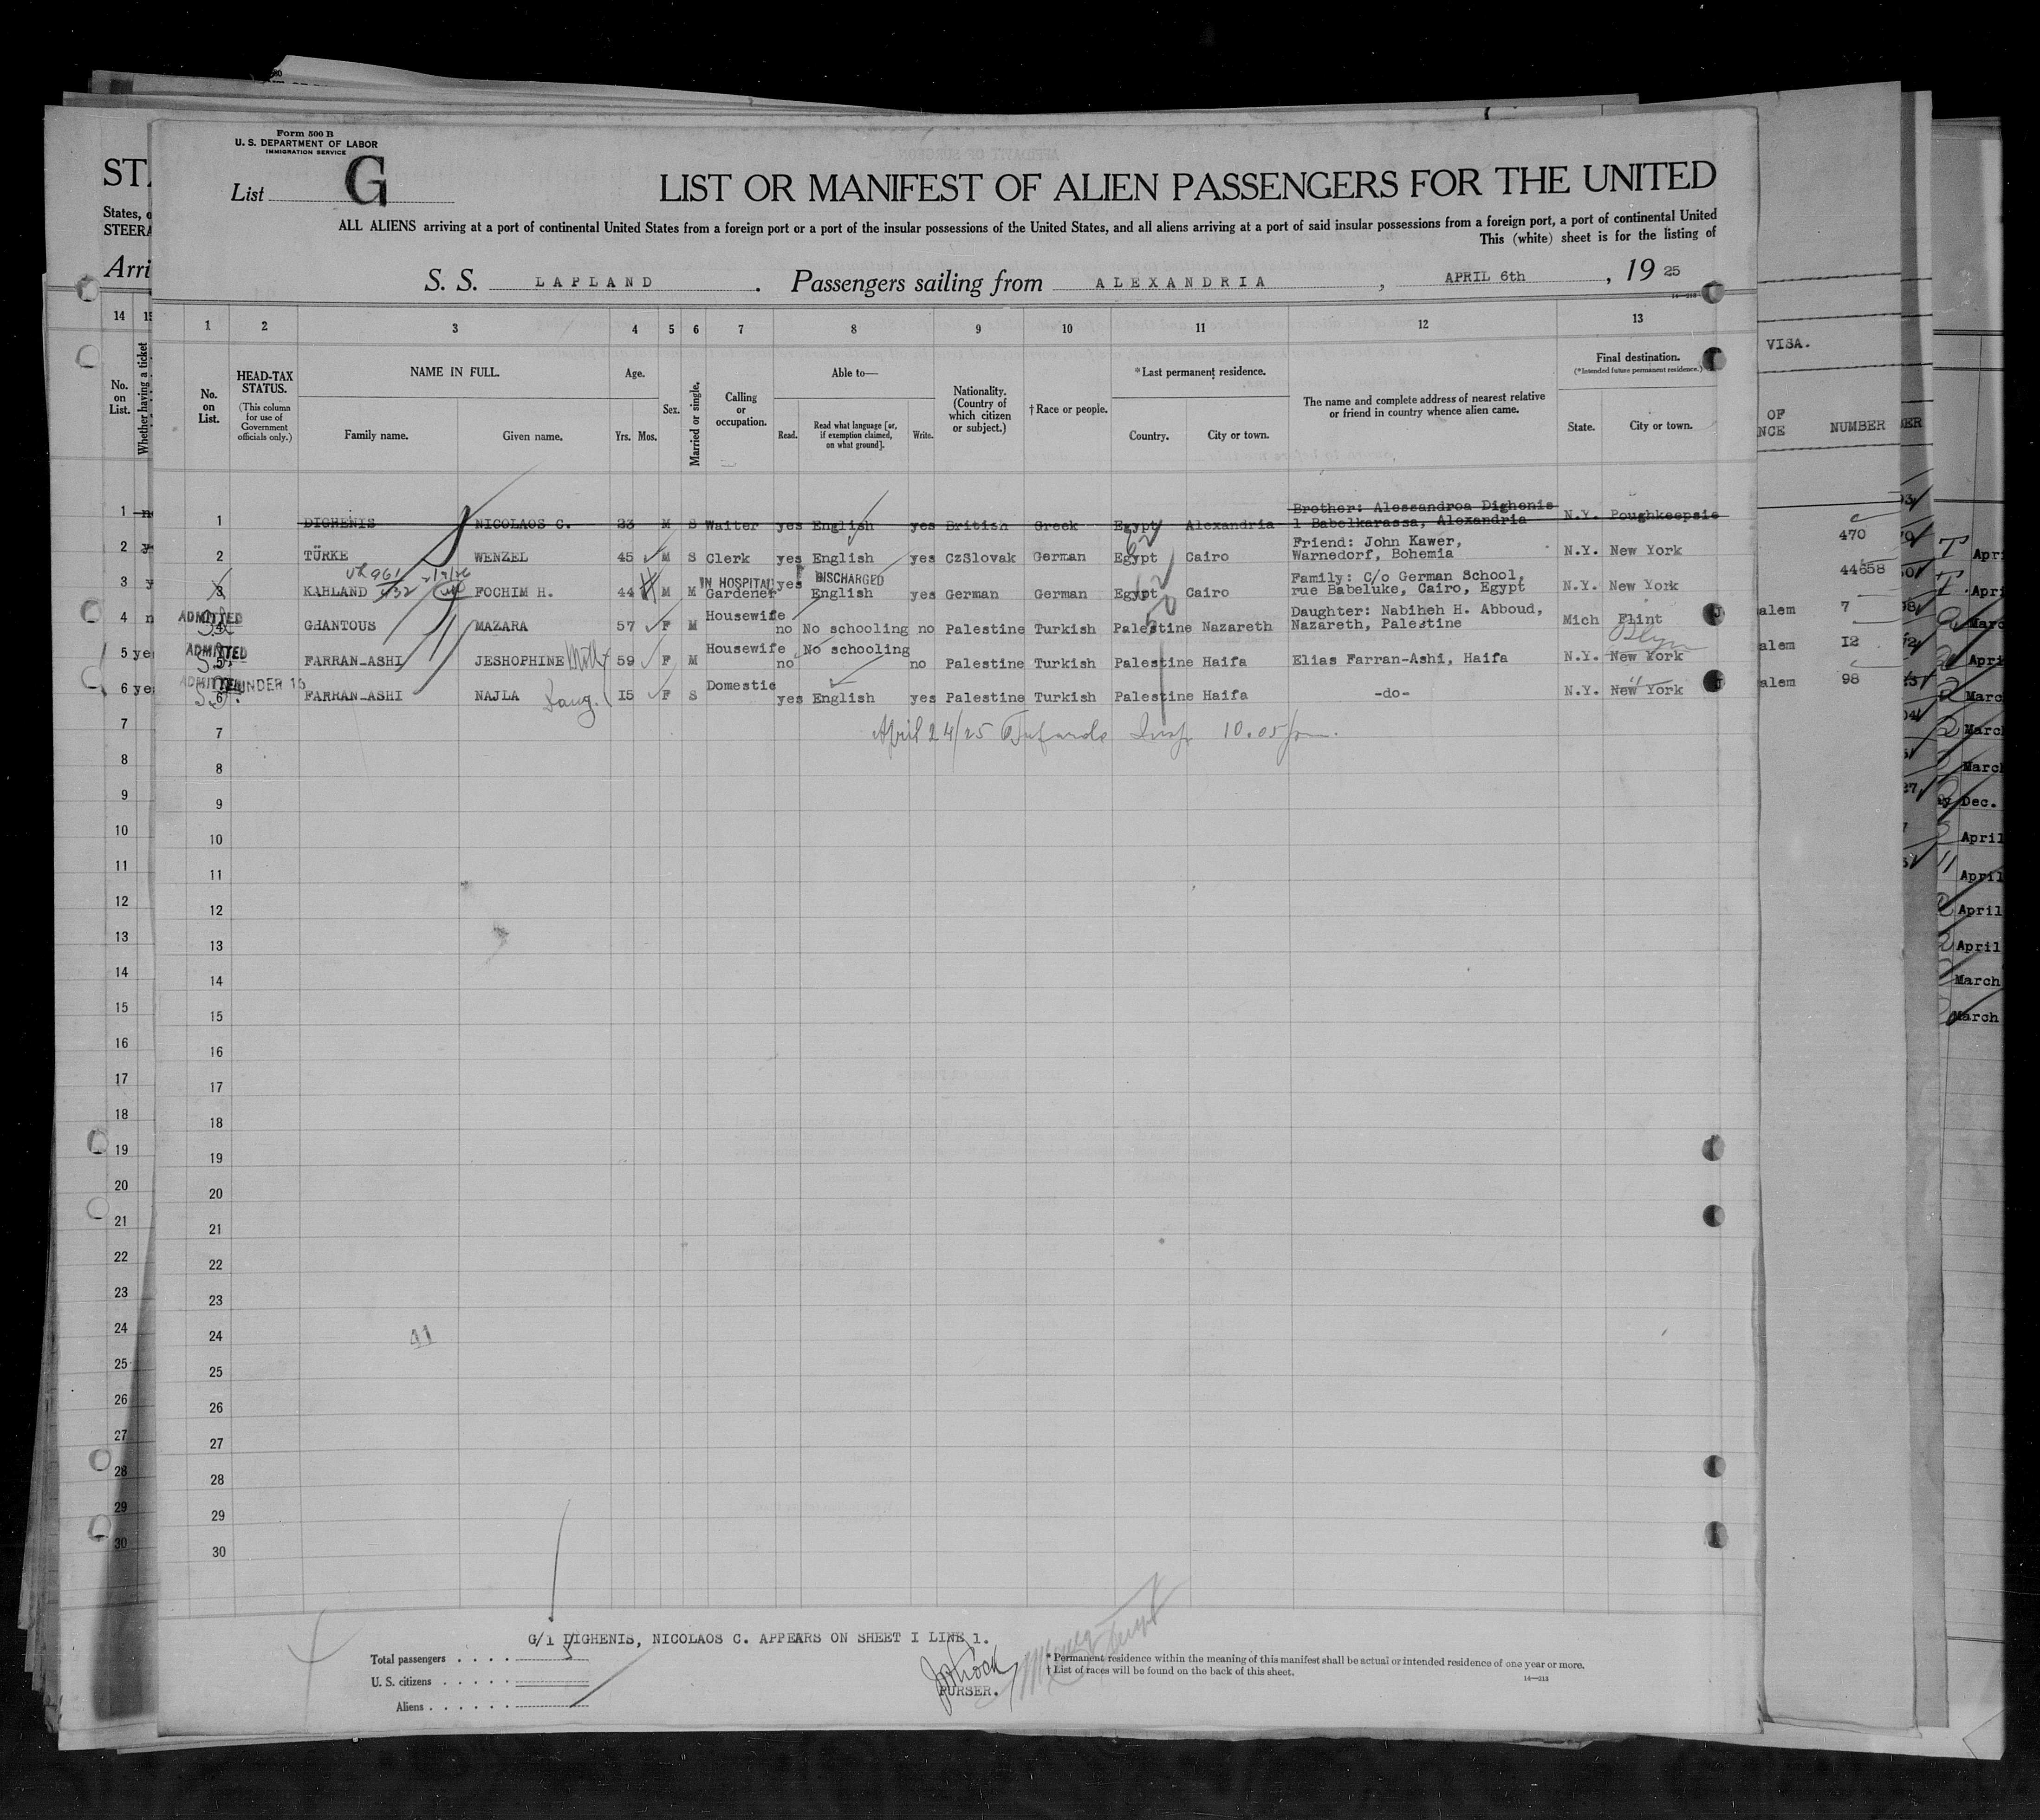 Form 500 B
U. S. DEPARTMENT OF LABOR
IMMIGRATION SERVICE
List G
LIST OR MANIFEST OF ALIEN PASSENGERS FOR THE UNITED
ALL ALIENS arriving at a port of continental United States from a foreign port or a port of the insular possessions of the United States, and all aliens arriving at a port of said insular possessions from a foreign port, a port of continental United
This (white) sheet is for the listing of
S. S. LAPLAND . Passengers sailing from ALEXANDRIA , APRIL 6th , 19 25
1 2 3 4 5 6 7 8 9 10 11 12 13
No. on List.
HEAD-TAX STATUS.
(This column for use of Government officials only.)
NAME IN FULL.
Family name. Given name.
Age.
Yrs. Mos.
Sex.
Married or single.
Calling or occupation.
Able to—
Read. Read what language [or, if exemption claimed, on what ground]. Write.
Nationality. (Country of which citizen or subject.)
† Race or people.
* Last permanent residence.
Country. City or town.
The name and complete address of nearest relative or friend in country whence alien came.
Final destination.
(* Intended future permanent residence.)
State. City or town.
1 DIGHENIS NICOLAOS C. 23 M S Waiter yes English yes British Greek Egypt Alexandria Brother: Alessandroa Dighenis 1 Babelkarassa, Alexandria N.Y. Poughkeepsie
2 TÜRKE WENZEL 45 M S Clerk yes English yes CzSlovak German Egypt Cairo Friend: John Kawer, Warnedorf, Bohemia N.Y. New York
IN HOSPITAL DISCHARGED
3 KAHLAND FOCHIM H. 44 M M Gardener yes English yes German German Egypt Cairo Family: C/o German School, rue Babeluke, Cairo, Egypt N.Y. New York
ADMITTED
4 GHANTOUS MAZARA 57 F M Housewife no No schooling no Palestine Turkish Palestine Nazareth Daughter: Nabiheh H. Abboud, Nazareth, Palestine Mich Flint
ADMITTED
5 FARRAN-ASHI JESHOPHINE Moth 59 F M Housewife no No schooling no Palestine Turkish Palestine Haifa Elias Farran-Ashi, Haifa N.Y. New York Bklyn
ADMITTED UNDER 16
6 FARRAN-ASHI NAJLA Daug. 15 F S Domestic yes English yes Palestine Turkish Palestine Haifa -do- N.Y. New York
April 24/25 10.05
7
8
9
10
11
12
13
14
15
16
17
18
19
20
21
22
23
24
41
25
26
27
28
29
30
G/1 DIGHENIS, NICOLAOS C. APPEARS ON SHEET I LINE 1.
Total passengers . . . . 5
U. S. citizens . . . . . .
Aliens . . . . . .
PURSER.
* Permanent residence within the meaning of this manifest shall be actual or intended residence of one year or more.
† List of races will be found on the back of this sheet.
14—213
STA
States, o
STEERA
Arri
14 15
No. on List.
Whether having a ticket
1 no
2 y
3 y
4 n
5 ye
6 ye
7
8
9
10
11
12
13
14
15
16
17
18
19
20
21
22
23
24
25
26
27
28
29
30
VISA.
OF
NCE NUMBER
470
44658
alem 7
alem 12
alem 98
Apri
Apri
Marc
Apri
Marc
Marc
Marc
Dec.
April
April
April
April
March
March